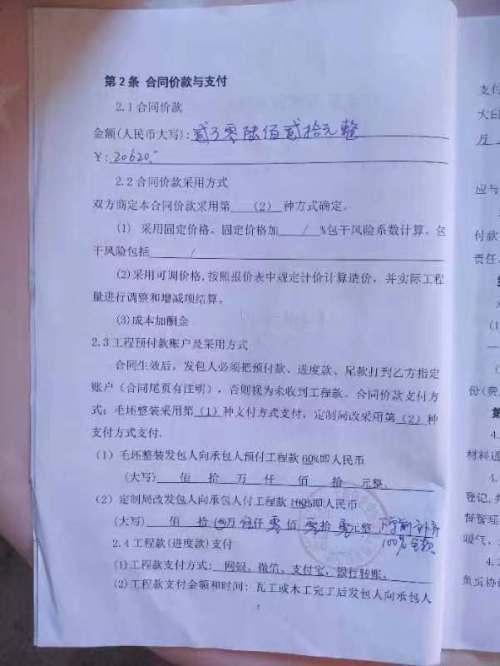 第2条 合同价款与支付
2.1合同价款
金额(人民币大写):贰万零陆佰贰拾元整
￥:20620.
2.2合同价款采用方式
双方商定本合同价款采用第 (2) 种方式确定。
(1) 采用固定价格。固定价格加 / %包干风险系数计算。包
干风险包括 /
(2)采用可调价格,按照报价表中规定计价计算造价，并实际工程
量进行调整和增减项结算。
(3)成本加酬金
2.3工程预付款账户及采用方式
合同生效后，发包人必须把预付款、进度款、尾款打到乙方指定
账户（合同尾页有注明），否则视为未收到工程款。合同价款支付方
式：毛坯整装采用第(1)种支付方式支付，定制局改采用第(2)种
支付方式支付.
(1) 毛坯整装发包人向承包人预付工程款60%即人民币
(大写) 佰 拾 万 仟 佰 拾 元整.
(2) 定制局改发包人向承包人付工程款100%即人民币
(大写) 佰 拾 万 仟零佰零拾零元整
100%全额
2.4工程款(进度款)支付
(1)工程款支付方式: 网银、微信、支付宝、银行转账。
(2)工程款支付金额和时间: 瓦工或木工完工后发包人向承包人
支付
大白
应与
付款
责任.
份(费
材料进
登记,
督管理
暖气,